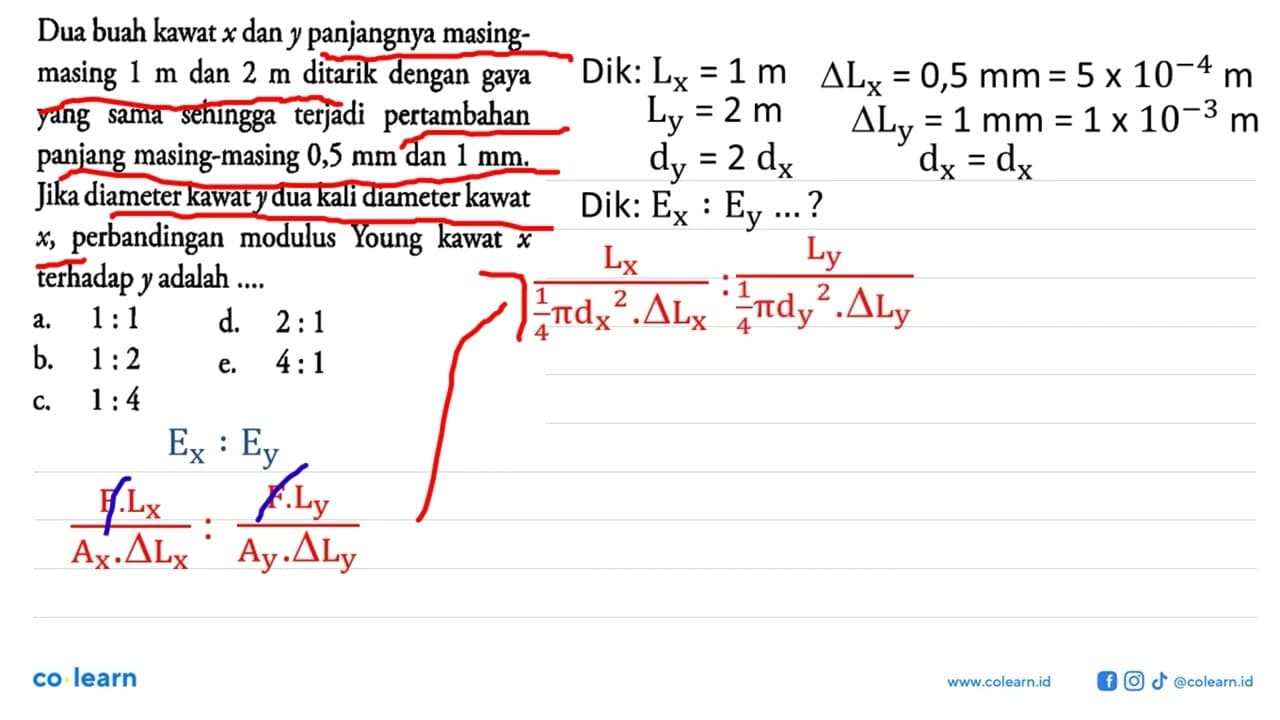 Dua buah kawat x dan y panjangnya masing-
masing 1 m dan 2 m ditarik dengan gaya
yang sama sehingga terjadi pertambahan
panjang masing-masing 0,5 mm dan 1 mm.
Jika diameter kawat y dua kali diameter kawat
x, perbandingan modulus Young kawat x
terhadap y adalah ....
a. 1 : 1 d. 2 : 1
b. 1 : 2 e. 4 : 1
c. 1 : 4
Dik: Lx = 1 m ΔLx = 0,5 mm = 5 x 10⁻⁴ m
Ly = 2 m ΔLy = 1 mm = 1 x 10⁻³ m
dy = 2 dx dx = dx
Dik: Ex : Ey ... ?
Lx Ly
:
1/4 πdx².ΔLx 1/4 πdy².ΔLy
Ex : Ey
F.Lx F.Ly
:
Ax.ΔLx Ay.ΔLy
co learn
www.colearn.id @colearn.id